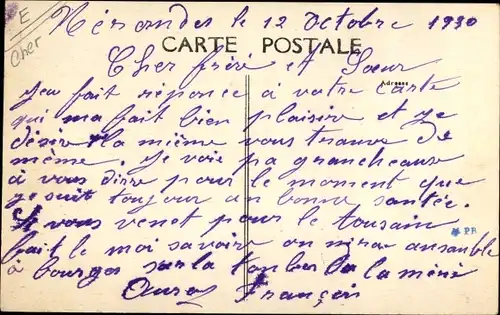 Nérondes le 12 octobre 1930
E
Cher
CARTE POSTALE
Cher frère et Sœur
Adresse
J'eu fait réponce à votre Carte
qui ma fait bien plaisire et je
désire la mième vous trouve de
même. Je voie pa grancheause
à vous dire pour le moment que
je suit toujour en bonne santée.
Si vous venet pour le tousain
fait le moi savoire on nira ansanble
à bourges sur la tonbes de la mère
François
PR